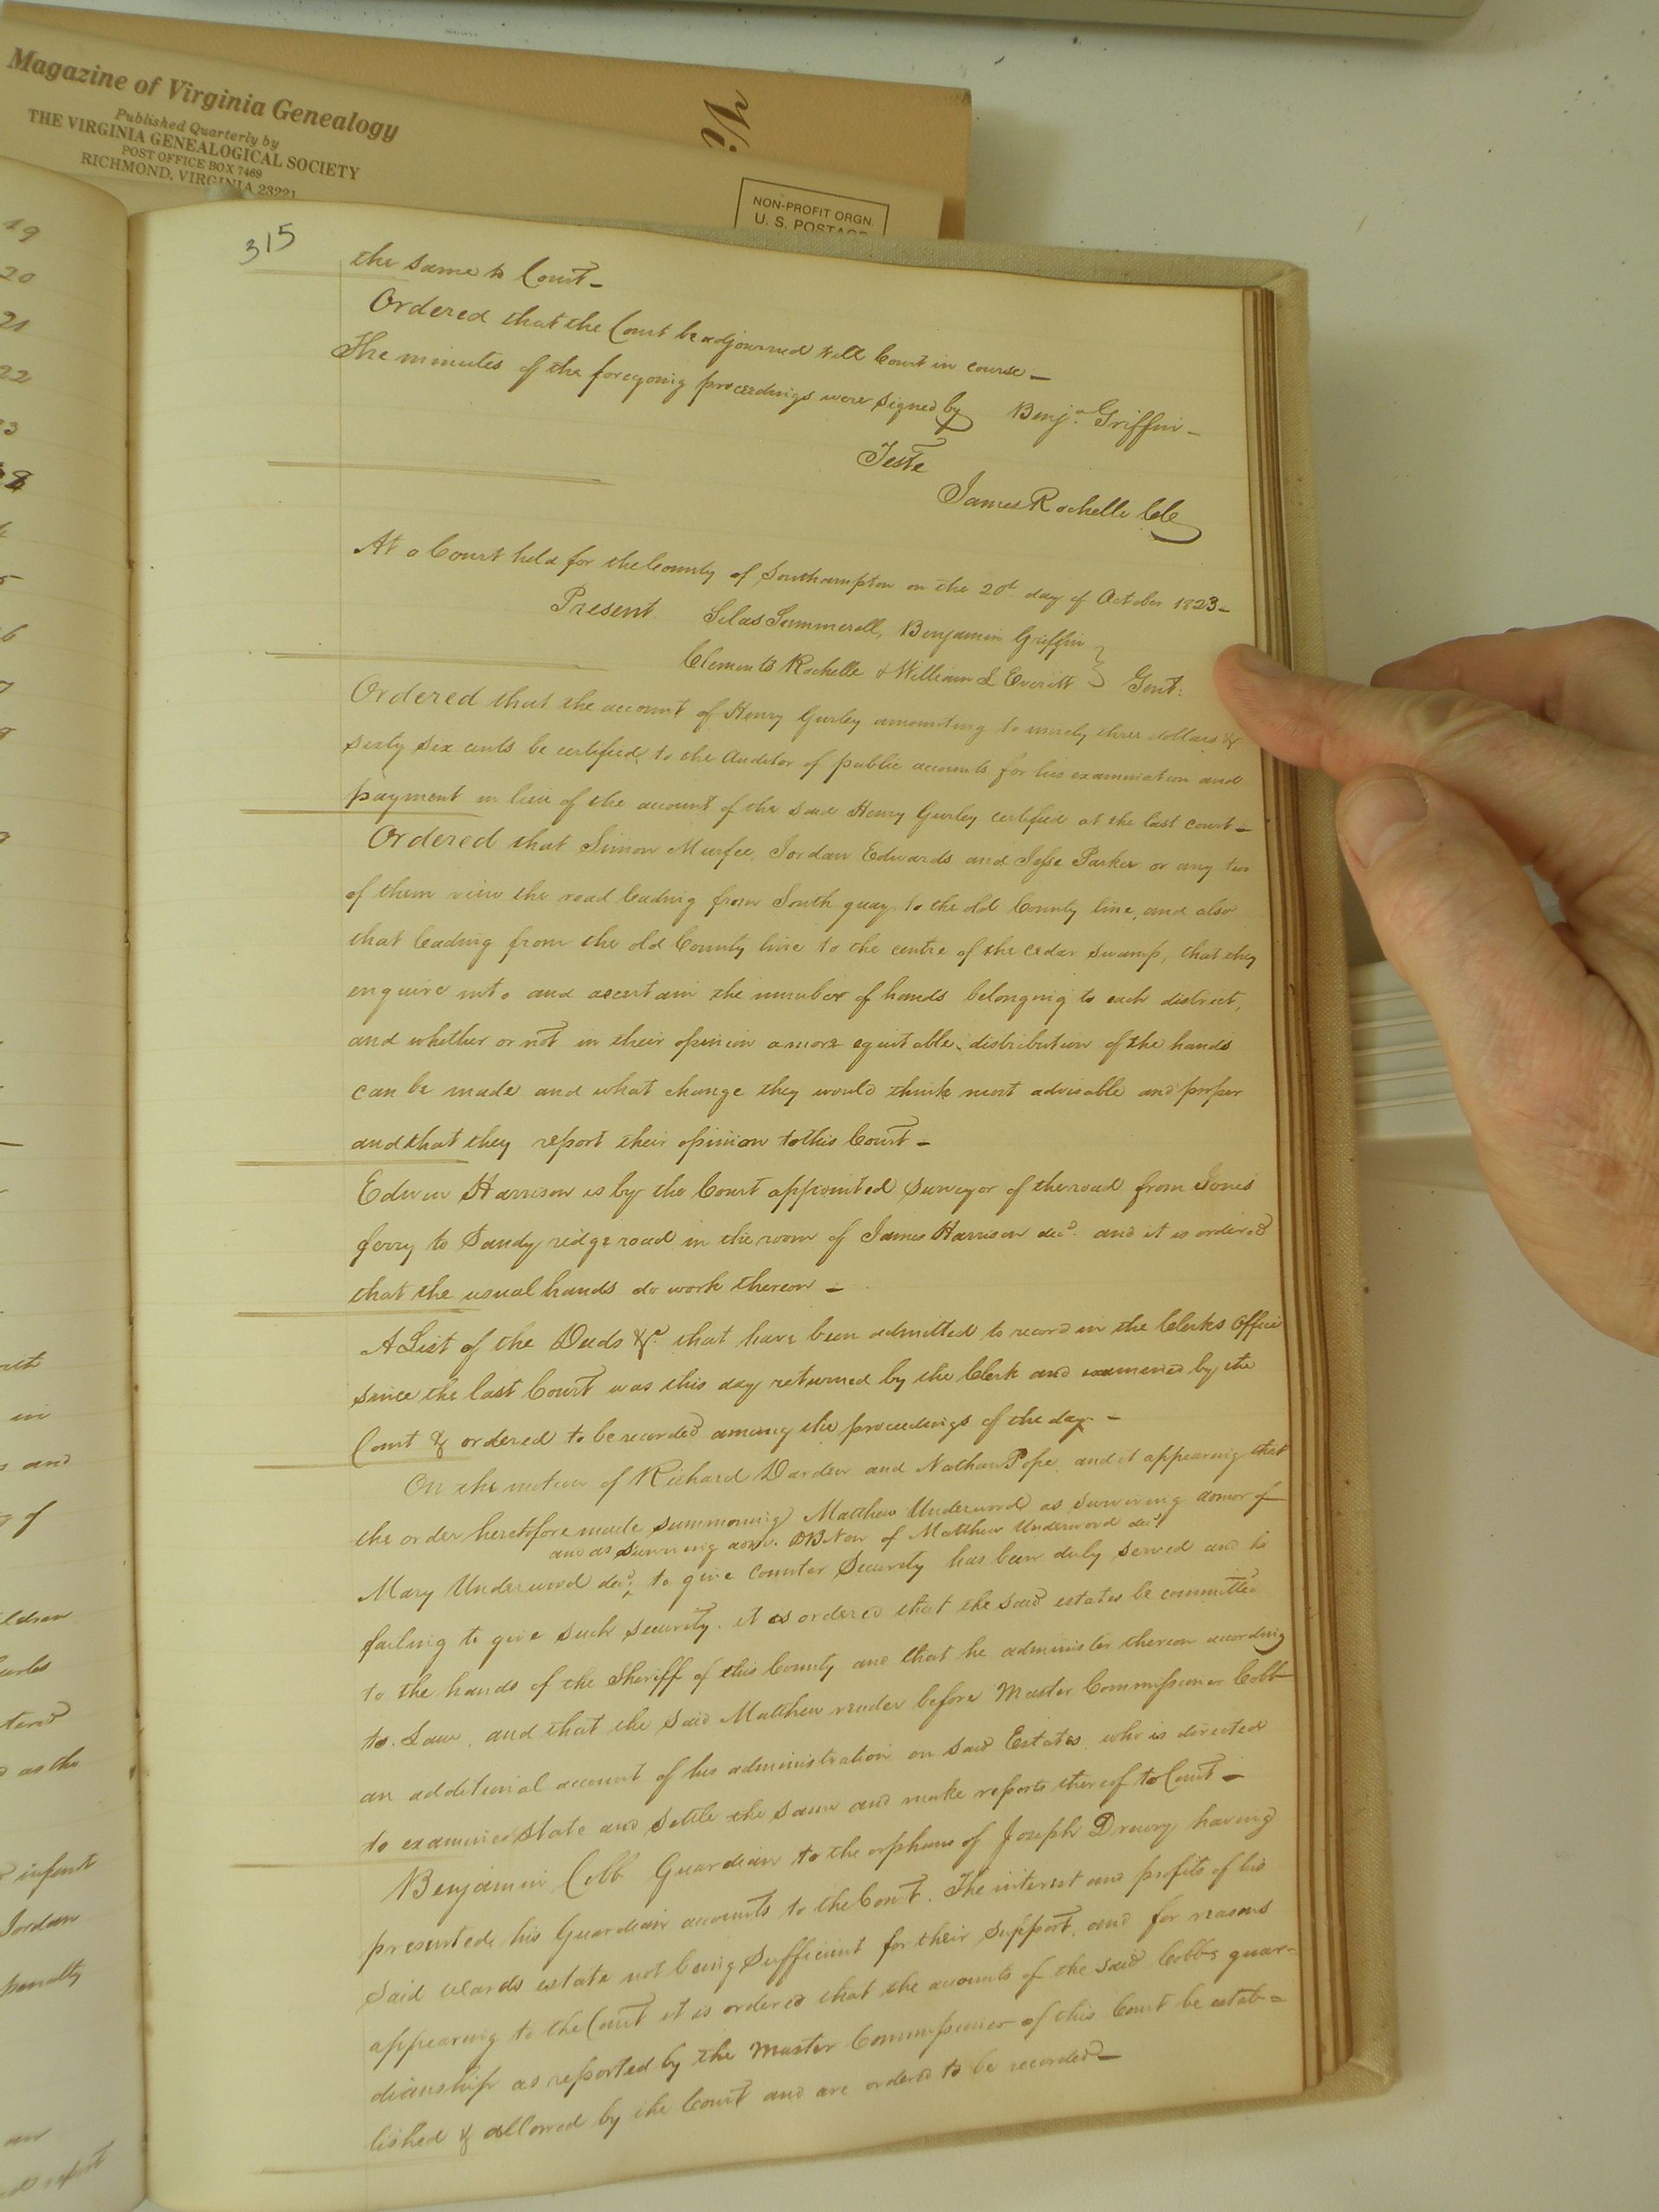 Magazine of Virginia Genealogy
Published Quarterly by
THE VIRGINIA GENEALOGICAL SOCIETY
POST OFFICE BOX 7469
RICHMOND, VIRGINIA 23221
NON-PROFIT ORGN.
U. S. POSTAGE
315
the same to Court -
Ordered that the Court be adjourned till Court in course -
The minutes of the foregoing proceedings were signed by Benja. Griffin -
Teste
James Rochelle Clk
At a Court held for the County of Southampton on the 20d. day of October 1823 -
Present Silas Summerell, Benjamin Griffin
Clements Rochelle & William L Everitt } Gent:
Ordered that the account of Henry Gurley amounting to ninety three dollars &
sixty six cents be certified to the Auditor of public accounts for his examination and
payment in lieu of the account of the said Henry Gurley certified at the last court -
Ordered that Simon Murfee, Jordan Edwards and Jesse Parker or any two
of them view the road leading from South quay to the old County line, and also
that leading from the old County line to the centre of the cedar swamp, that they
enquire into and ascertain the number of hands belonging to each district,
and whether or not in their opinion a more equitable distribution of the hands
can be made and what change they would think most advisable and proper
and that they report their opinion to this Court -
Edwin Harrison is by the Court appointed Surveyor of the road from Jones
ferry to Sandy ridge road in the room of James Harrison decd. and it is ordered
that the usual hands do work thereon -
A List of the Deeds &c. that have been admitted to record in the Clerks Office
since the last Court was this day returned by the Clerk and examined by the
Court & ordered to be recorded among the proceedings of the day -
On the motion of Richard Darden and Nathan Pope and it appearing that
the order heretofore made summoning Matthew Underwood as surviving admor of
and as surviving adm. DBNon of Matthew Underwood decd.
Mary Underwood decd. to give Counter Security has been duly served and he
failing to give such security. it is ordered that the said estates be committed
to the hands of the Sheriff of this County and that he administer thereon according
to Law, and that the said Matthew render before Master Commissioner Cobb
an additional account of his administration on said Estates, who is directed
to examine state and settle the same and make reports thereof to Court -
Benjamin Cobb Guardian to the orphans of Joseph Drewry having
presented his Guardian accounts to the Court. The interest and profits of his
said wards estate not being Sufficient for their Support, and for reasons
appearing to the Court it is ordered that the accounts of the said Cobbs guar-
dianship as reported by the Master Commissioner of this Court be estab-
lished & allowed by the Court and are ordered to be recorded -